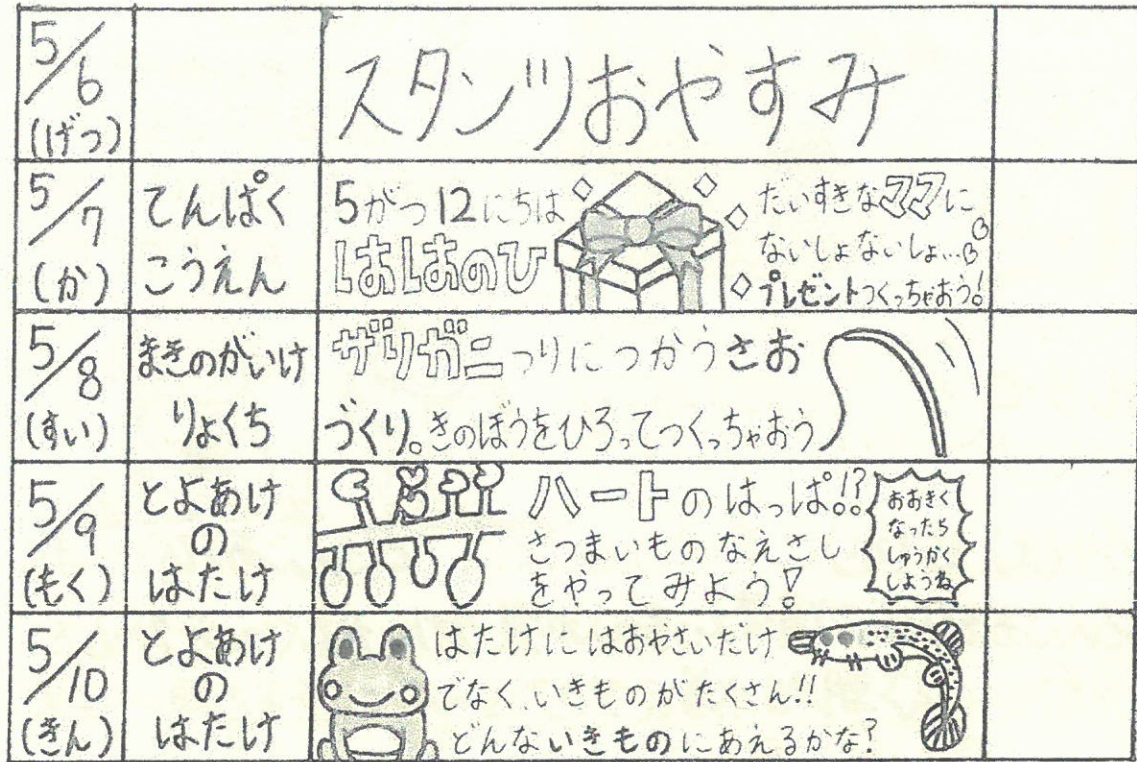 5/6
(げつ)
スタンツおやすみ
5/7
(か)
てんぱく
こうえん
5がつ12にちは
ははのひ
だいすきなママに
ないしょないしょ…
プレゼントつくっちゃおう!
5/8
(すい)
まきのがいけ
りょくち
ザリガニつりにつかうさお
づくり。きのぼうをひろってつくっちゃおう
5/9
(もく)
とよあけ
の
はたけ
ハートのはっぱ!?
さつまいものなえさし
をやってみよう!
おおきく
なったら
しゅうかく
しようね
5/10
(きん)
とよあけ
の
はたけ
はたけにはおやさいだけ
でなく、いきものがたくさん!!
どんないきものにあえるかな?